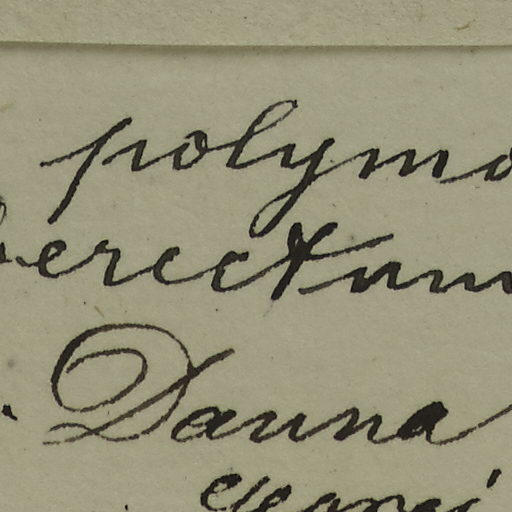 polymo
erectum
Dauna